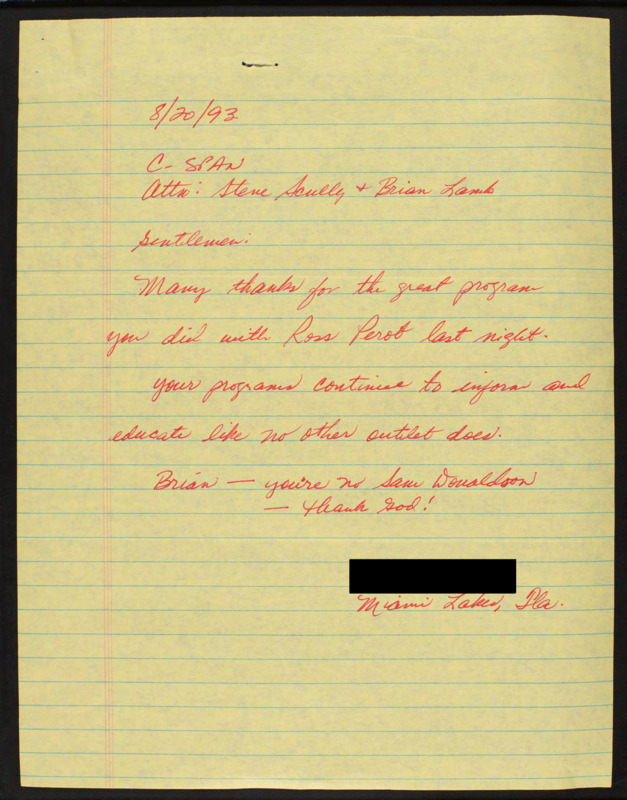 8/20/93
C-SPAN
Attn: Steve Scully + Brian Lamb
Gentlemen:
Many thanks for the great program
you did with Ross Perot last night.
Your programs continue to inform and
educate like no other outlet does.
Brian — you're no Sam Donaldson
— thank God!
Miami Lakes, Fla.